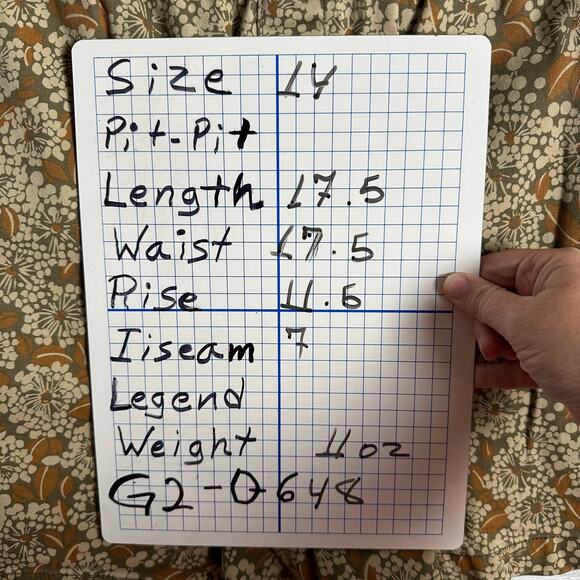 Size 14
Pit-Pit
Length 17.5
Waist 17.5
Rise 11.5
Iiseam 7
Legend
Weight 11oz
G2-0648